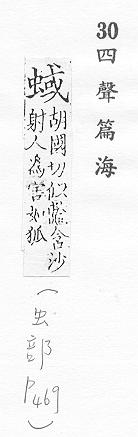 30四聲篇海
蜮
胡國切似鼈含沙
射人為害如狐
(虫部
P469)